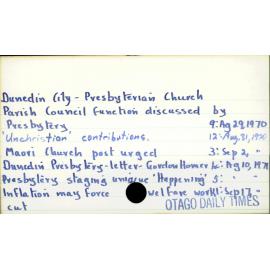 Dunedin City - Presbyterian Church
Parish Council function discussed by
Presbytery 9: Ag 29, 1970
'Unchristian' contributions. 12: Aug. 31, 1970
Maori Church post urged 3: Sep 2, "
Dunedin Presbytery - letter - Gordon 16: Aug 10, 1971
Presbytery staging unique 'Happening' 5: "
Inflation may force welfare work Sep 17 "
cut
OTAGO DAILY TIMES